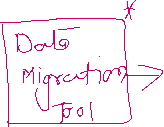 *
Data
Migration
Tool